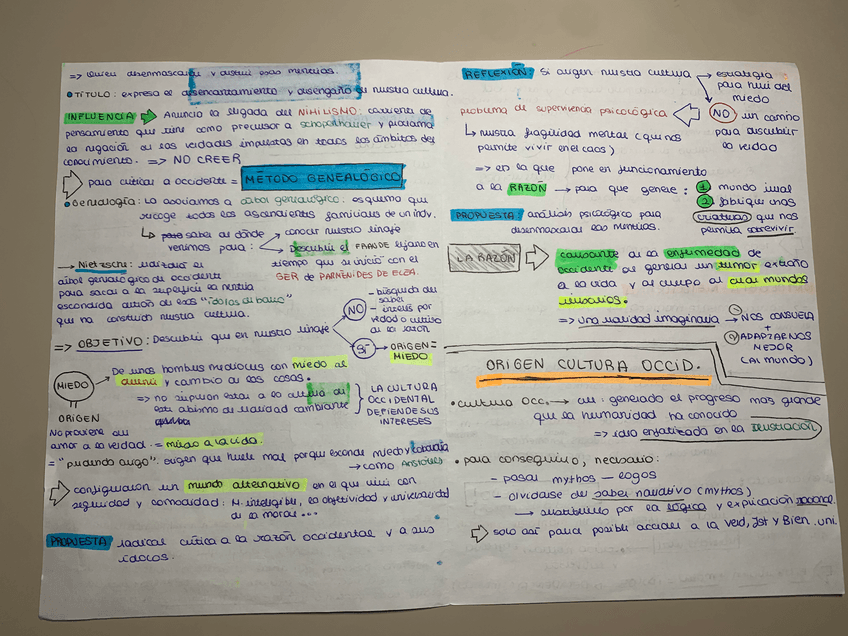 => Quiere desenmascarar y destruir esas mentiras.
• TÍTULO: expresa el desencantamiento y desengaño de nuestra cultura.
INFLUENCIA Anuncia la llegada del NIHILISMO: corriente de
pensamiento que tiene como precursor a Schopenhauer y proclama
la negación de las verdades impuestas en todos los ámbitos del
conocimiento. => NO CREER
para criticar a occidente = MÉTODO GENEALÓGICO
• Genealogía: La asociamos a árbol genealógico: esquema que
recoge todos los ascendientes familiares de un indv.
saber de dónde venimos para:
conocar nuestro linaje
Descubrir el FRAUDE lejano en
tiempo que se inició con el
SER de PARMÉNIDES DE ELEA.
→ Nietzsche: realizará el
árbol genealógico de occidente
para sacar a la superficie la mentira
escondida detrás de esos "ídolos de barro"
que ha construido nuestra cultura.
=> OBJETIVO: Descubrir que en nuestro linaje
NO
- búsqueda del
saber
- interés por
verdad o cultivo
de la razón
SÍ → ORIGEN =
MIEDO
MIEDO
ORIGEN
De unos hombres mediocres con miedo al
devenir y cambio de las cosas.
=> no supieron estar a la altura de
este abismo de realidad cambiante
LA CULTURA
OCCIDENTAL
DEFIENDE SUS
INTERESES
No proviene del
amor a la verdad. = miedo a la vida.
= "pudendo origo": origen que huele mal porque esconde miedo y cobardía
→ como Aristóteles
configuraron un mundo alternativo en el que vivir con
seguridad y comodidad: M. inteligible, la objetividad y universalidad
de la moral...
PROPUESTA radical crítica a la razón occidental y a sus
ídolos.
REFLEXIÓN: Si origen nuestra cultura
estrategia
para huir del
miedo
NO un camino
para descubrir
la verdad
problema de supervivencia psicológica
↳ nuestra fragilidad mental (que nos
permite vivir en el caos)
=> en la que pone en funcionamiento
a la RAZÓN → para que genere: 1 mundo irreal
2 fabrique unas
criaturas que nos
permita sobrevivir
PROPUESTA: análisis psicológico para
desenmascarar las mentiras.
LA RAZÓN
causante de la enfermedad de
occidente al generar un tumor extraño
a la vida y al cuerpo al crear mundos
ilusorios.
=> una realidad imaginaria → NOS CONSUELA
+
ADAPTARNOS
MEJOR
(al mundo)
ORIGEN CULTURA OCCID.
• cultura Occ. → ha generado el progreso más grande
que la humanidad ha conocido
=> idea enfatizada en la Ilustración
• para conseguirlo, necesario:
- pasar mythos — logos
- olvidarse del saber narrativo (mythos)
→ sustituirlo por la lógica y explicación racional
solo así parece posible acceder a la verd, Jst y Bien. uni.